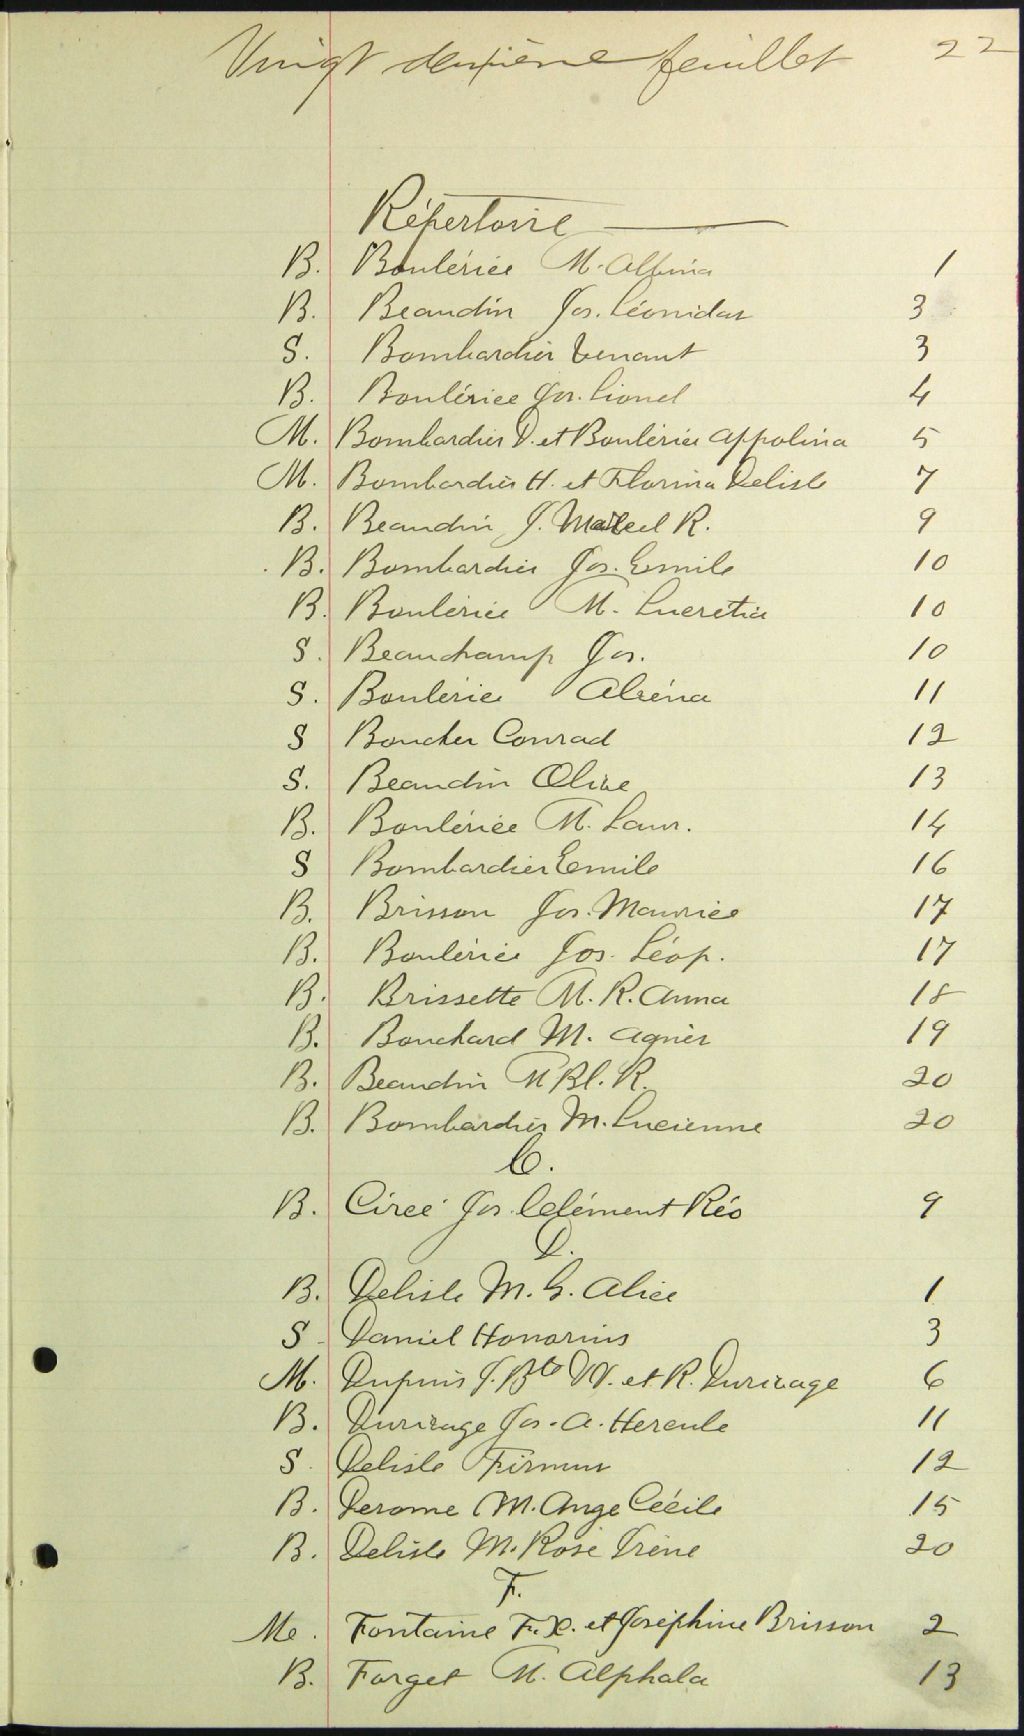 Vingt deuxième feuillet 22
Répertoire
B. Boulérice M. Albina 1
B. Beaudin Jos. Léonidas 3
S. Bombardier Venant 3
B. Boulérice Jos. Lionel 4
M. Bombardier D. et Boulérice Appolina 5
M. Bombardier H. et Florina Delisle 7
B. Beaudin J. Marcel R. 9
B. Bombardier Jos. Emile 10
B. Boulérice M. Lucretia 10
S. Beauchamp Jos. 10
S. Boulérice 11
S Boucher Conrad 12
S. Beaudin Olive 13
B. Boulérice M. Laur. 14
S Bombardier Emile 16
B. Brisson Jos. Maurice 17
B. Boulérice Jos. Léop. 17
B. Brissette M. R. Anna 18
B. Bouchard M. Agnès 19
B. Beaudin M Bl. R. 20
B. Bombardier M. Lucienne 20
C.
B. Circé Jos. Clément Réo 9
D.
B. Delisle M. G. Alice 1
S Daniel Honorius 3
M. Dupuis J. Bte W. et R. Durivage 6
B. Durivage Jos. A. Hercule 11
S. Delisle Firmin 12
B. Derome M. Ange Cécile 15
B. Delisle M. Rose Irène 20
F.
Me. Fontaine F. X. et Joséphine Brisson 2
B. Forget M. Alphala 13